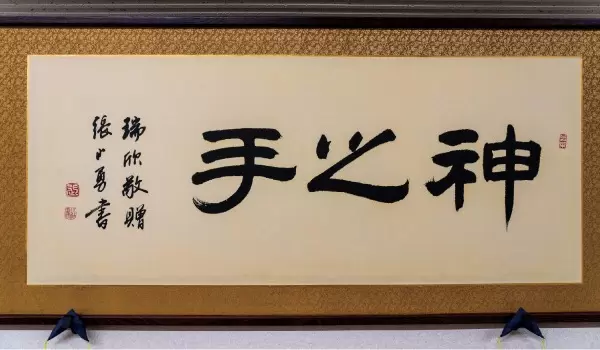 神之手
瑞欣敬贈
張勇書